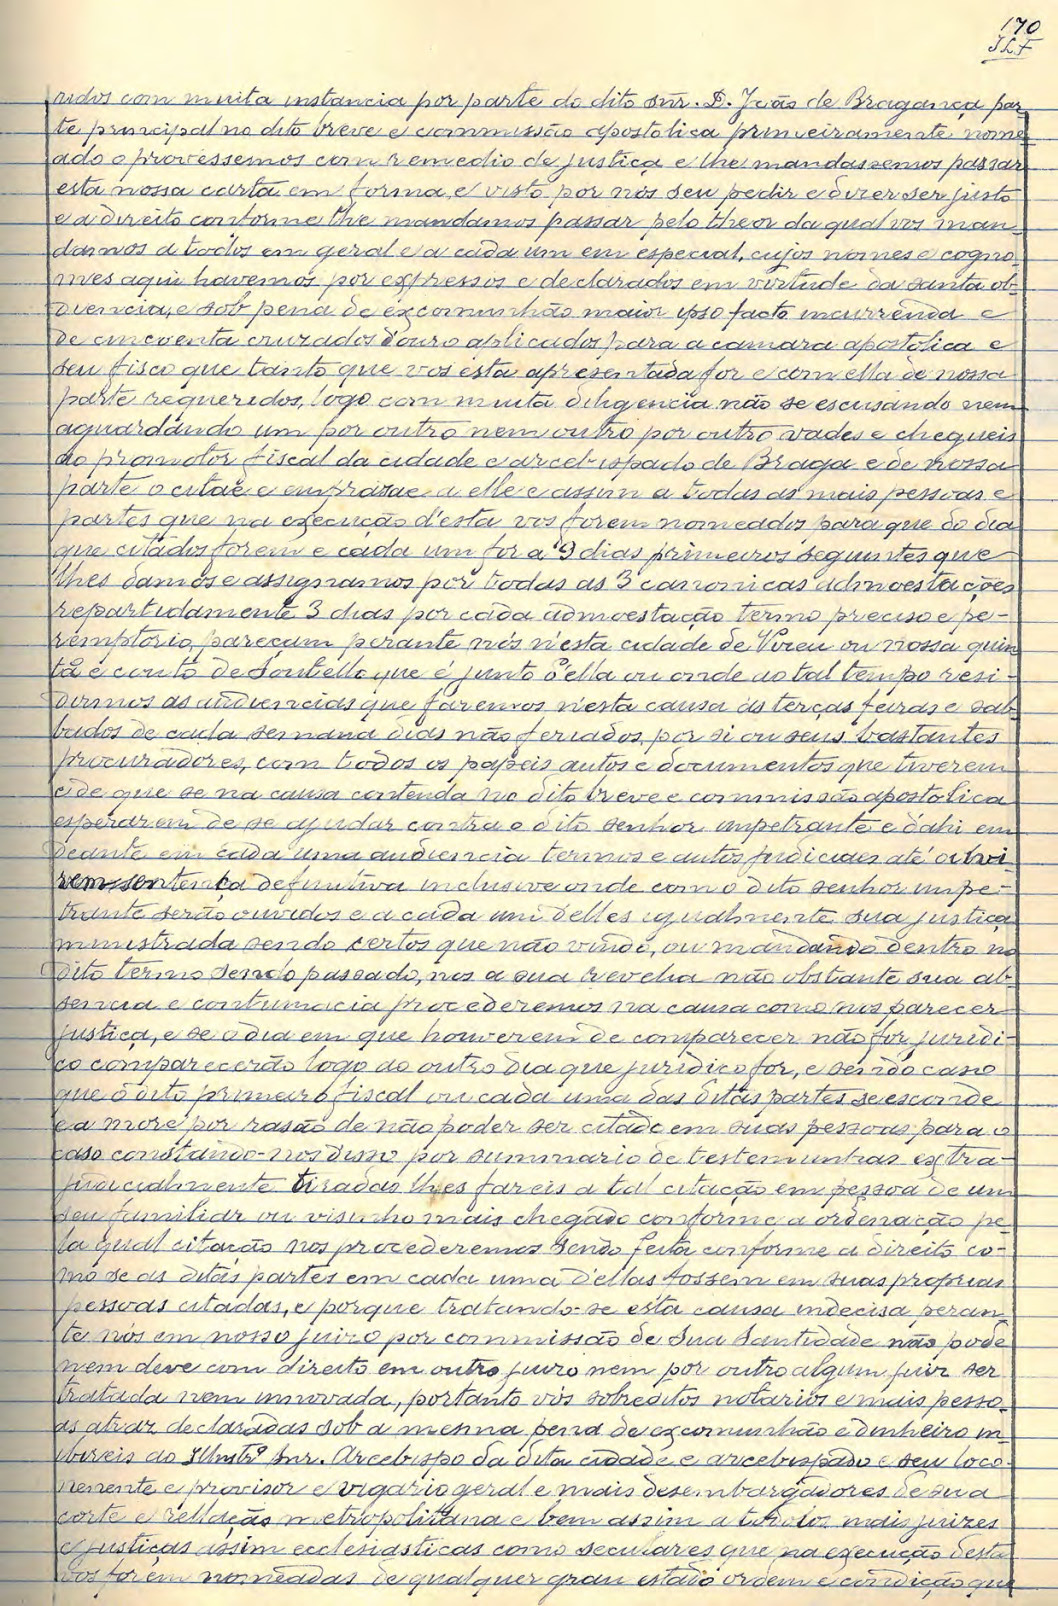 170
JLF
ridos com muita instancia por parte do dito snr. D. João de Bragança par-
te principal no dito breve e commissão apostolica primeiramente nome
ado o provessemos com remedio de justiça e lhe mandassemos passar
esta nossa carta em forma, e visto por nós seu pedir e dizer ser justo
e a direito conforme lhe mandamos passar pelo theor da qual vos man-
damos a todos em geral e a cada um em especial, cujos nomes e cogno-
mes aqui havemos por expressos e declarados em virtude da santa ob-
diencia, e sob pena de excomunhão maior ipso facto incurrenda e
de cincoenta cruzados d'ouro aplicados para a camara apostolica e
seu fisco que tanto que vos esta apresentada for e com ella de nossa
parte requeridos, logo com muita diligencia não se escusando nem
aguardando um por outro nem outro por outro vades e chegueis
ao promotor fiscal da cidade e arcebispado de Braga e de nossa
parte o citae e emprasae a elle e assim a todas as mais pessoas e
partes que na execução d'esta vos forem nomeados, para que do dia
que citados forem e cada um for a 9 dias primeiros seguintes que
lhes damos e assignamos por todas as 3 canonicas admoestações
repartidamente 3 dias por cada admoestação termo preciso e pe-
remptorio, pareçam perante nós n'esta cidade de Vizeu ou nossa quin
ta e couto de Fontello que é junto d'ella ou onde ao tal tempo resi-
dirmos as audiencias que faremos n'esta causa ás terças feiras e sab-
bados de cada semana dias não feriados, por si ou seus bastantes
procuradores, com todos os papeis autos e documentos que tiverem
e de que se na causa contenda no dito breve e commissão apostolica
esperarem de se ajudar contra o dito senhor impetrante e d'ahi em
deante em cada uma audiencia termos e autos judiciaes até ouvi
rem sentença definitiva inclusive onde com o dito senhor impe-
trante serão ouvidos e a cada um d'elles igualmente sua justiça
ministrada sendo certos que não vindo, ou mandando dentro no
dito termo sendo passado, nos a sua revelia não obstante sua ab-
sencia e contumacia procederemos na causa como nos parecer
justiça, e se o dia em que houverem de comparecer não for juridi-
co comparecerão logo ao outro dia que juridico for, e sendo caso
que o dito primeiro fiscal ou cada uma das ditas partes se esconde
e a more por rasão de não poder ser citade em suas pessoas para o
caso constando-nos disso por summario de testemunhas extra-
judicialmente tiradas lhes fareis a tal citação em pessoa de um
seu familiar ou visinho mais chegado conforme a ordenação pe-
la qual citação nos procederemos sendo feita conforme a direito co-
mo se as ditas partes em cada uma d'ellas fossem em suas proprias
pessoas citadas, e porque tratando-se esta causa indecisa peran-
te nós em nosso juizo por commissão de Sua Santidade não pode
nem deve com direito em outro juizo nem por outro algum juiz ser
tratada nem innovada, portanto vós sobreditos notarios e mais pesso-
as atraz declaradas sob a mesma pena de excomunhão e dinheiro in-
ibireis ao Illmtrº Snr. Arcebispo da dita cidade e arcebispado e seu loco-
nemente e provisor e vigario geral e mais desembargadores de sua
corte e rellação metropolitana e bem assim a todolos mais juizes
e justiças assim ecclesiasticas como seculares que na execução desta
vos forem nomeadas de qualquer grau estado ordem e condição que